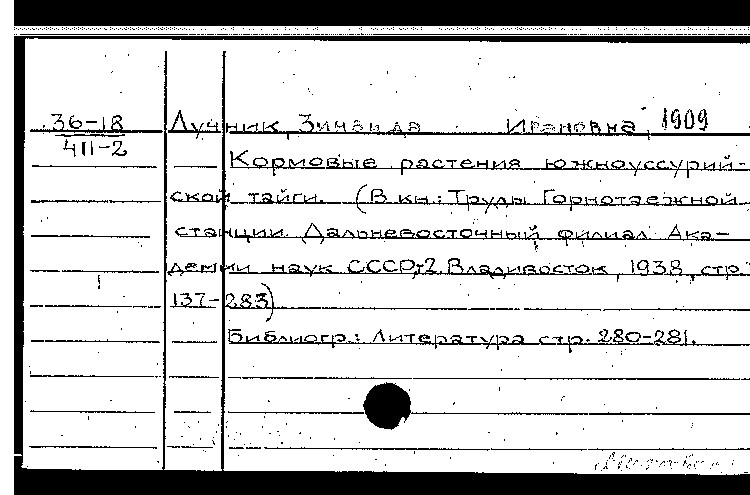 36-18
411-2
Лучник, Зинаида Ивановна, 1909
Кормовые растения южноуссурий-
ской тайги. (В кн.: Труды Горнотаежной
станции. Дальневосточный филиал Ака-
демии наук СССР, т2. Владивосток, 1938, стр.
137-283)
Библиогр.: Литература стр. 280-281.